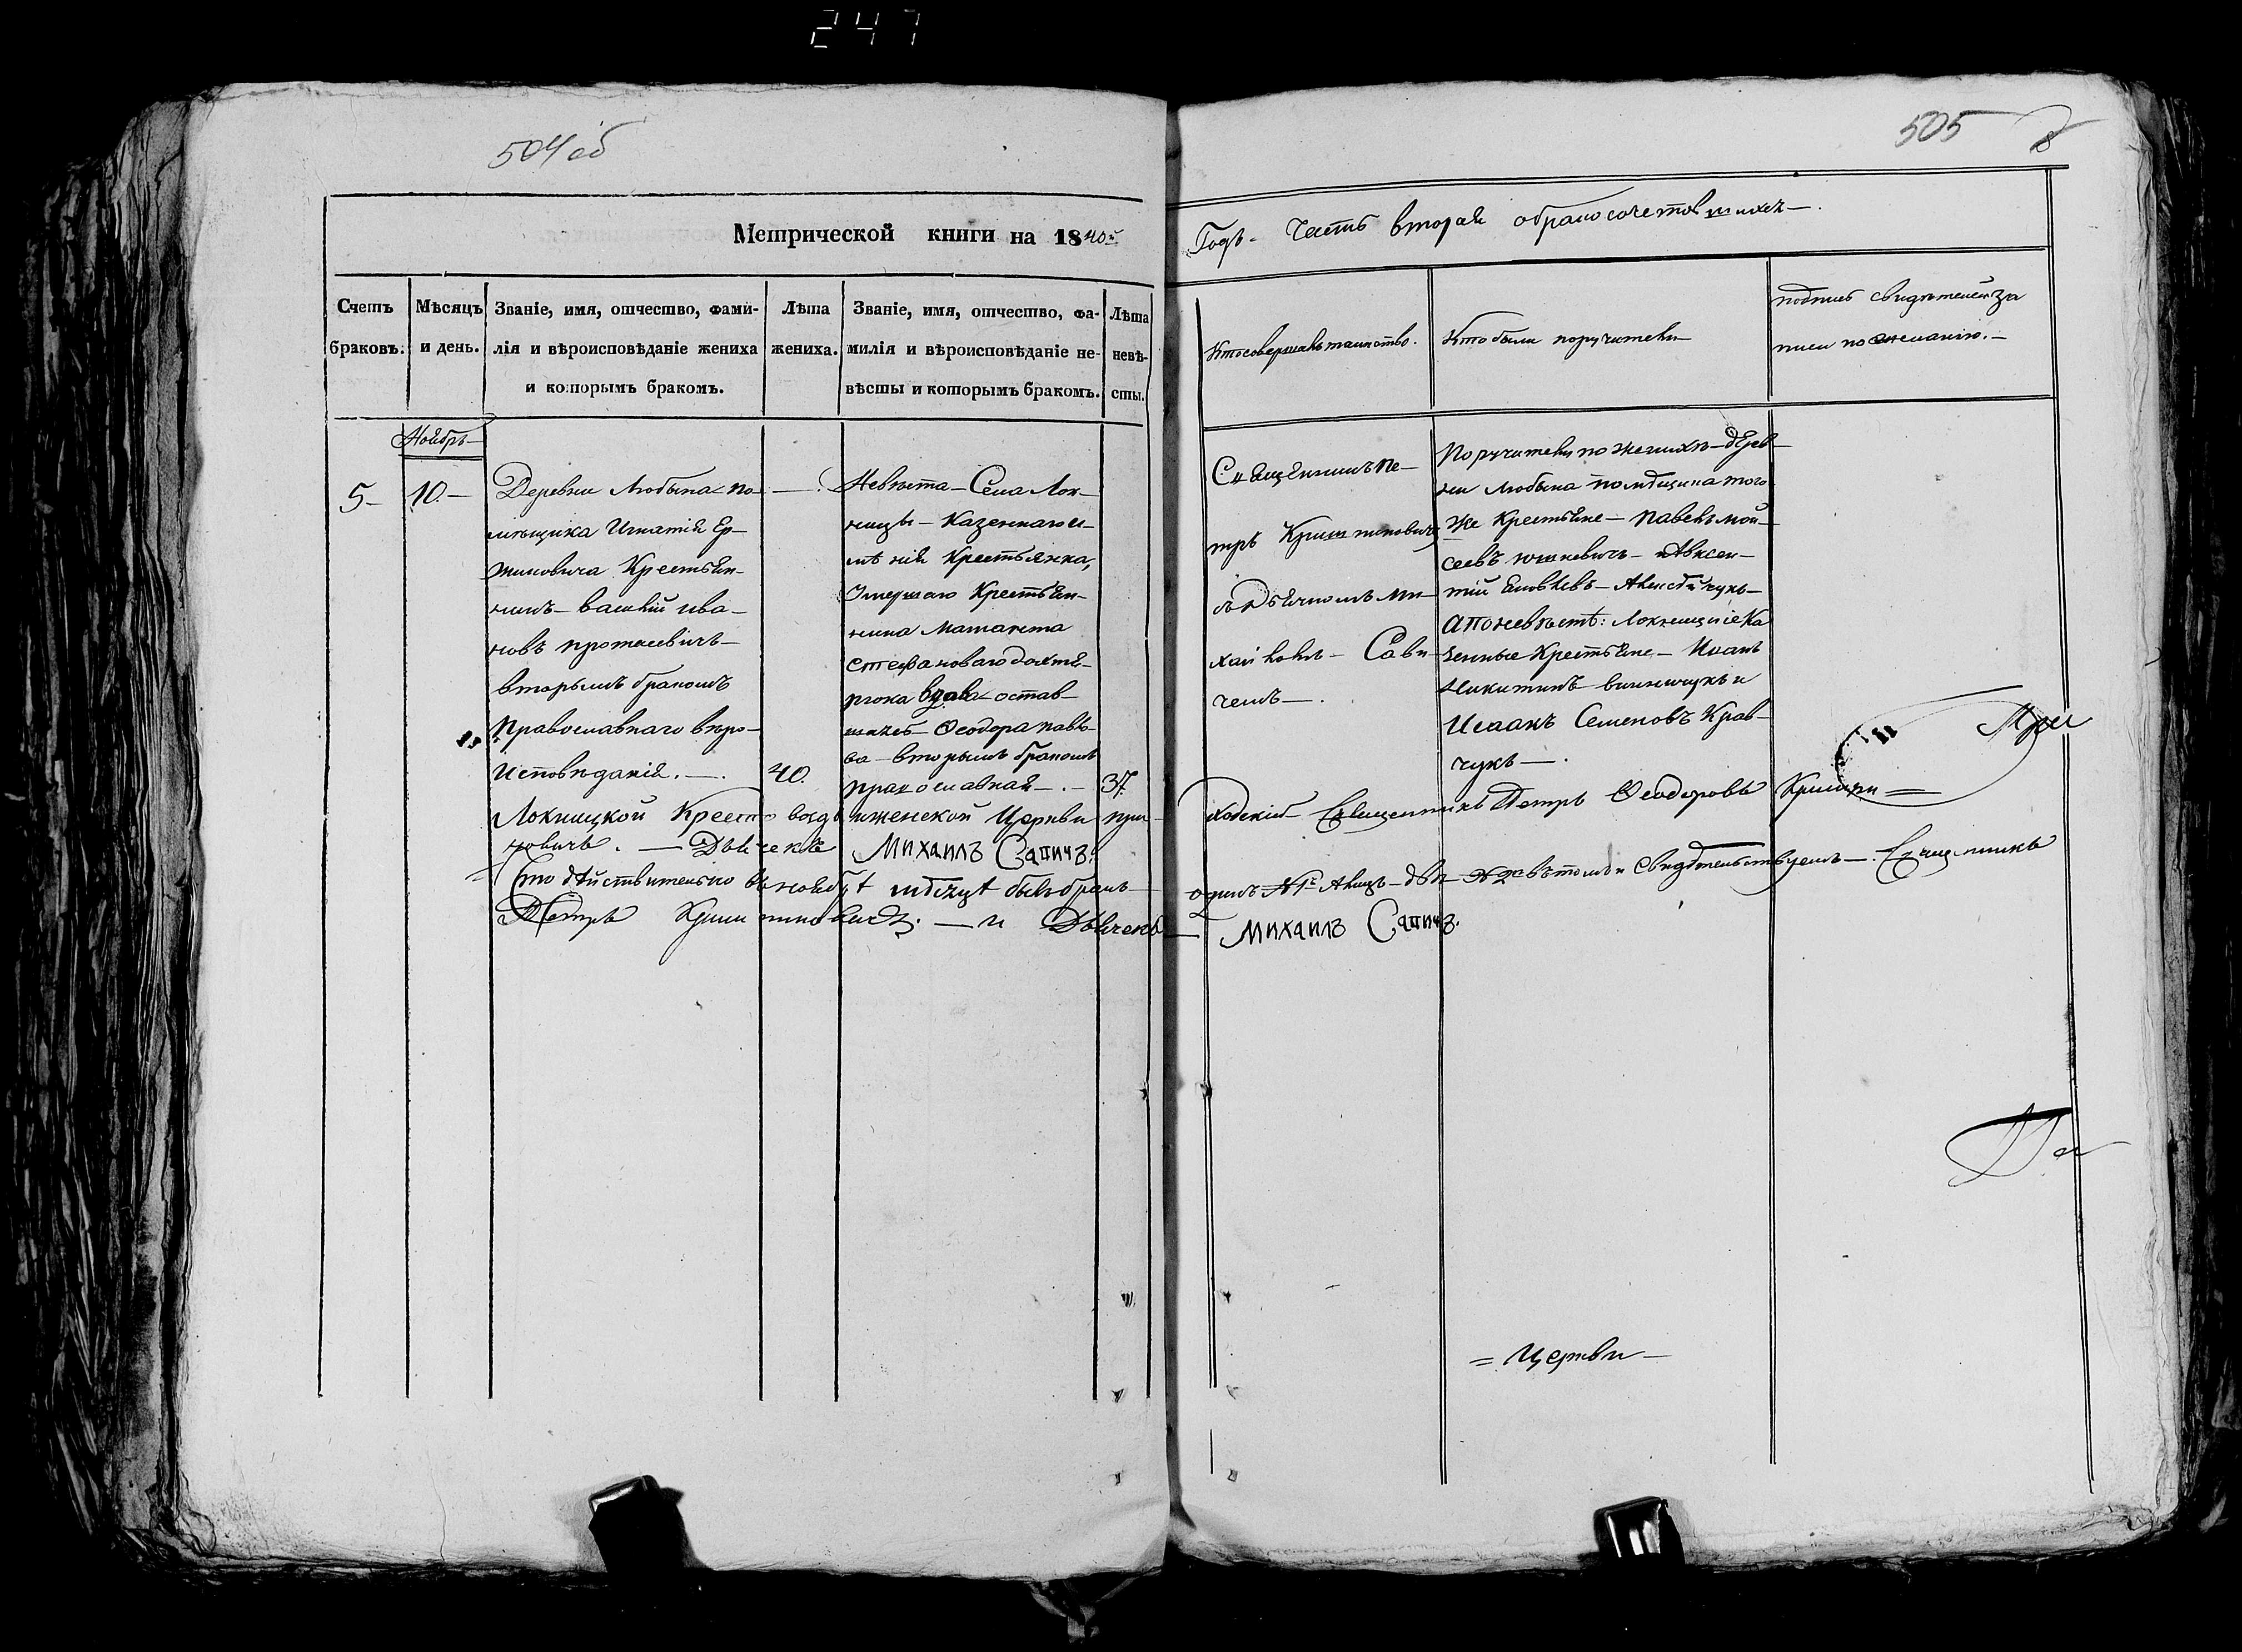 247
504 об
505
Метрической книги на 1840й
Годъ. Часть вторая о бракосочетовшихся.
Счетъ браковъ.
Мѣсяцъ и день.
Званіе, имя, отчество, фами-
лія и вѣроисповѣданіе жениха
и которымъ бракомъ.
Лѣта
жениха.
Званіе, имя, отчество, фа-
милія и вѣроисповѣданіе не-
вѣсты и которымъ бракомъ.
Лѣта
невѣ-
сты.
Кто совершалъ таинство.
Кто были поручители
подпись свидѣтелей за
писи по желанію.—
Ноябрь
5 —
10. —
Деревни Любына по-
мѣщика Игнатія Ер-
тиковича Крестьян-
нинъ — Василій ива-
новъ протасевичъ —
вторымъ бракомъ
Православнаго вѣро-
исповѣданія. —
40.
Невѣста — Села Лок-
ницы — Казеннаго и-
мѣнія Крестьянка,
Умершаго Крестьян-
нина
Стефановаго
вдова остав-
шаясь — Ѳеодора Павло-
ва — вторымъ бракомъ
православная —. —
37.
Священникъ Пе-
тръ Криштиновичъ
съ Дьячкомъ Ми-
хайломъ — Сапи-
чемъ —.
Поручители по женихѣ — дерев-
ни Любына помѣщика того
же Крестьяне — Павелъ Мои-
сеевъ Юшкевичъ — и Авксен-
тій — Алексѣйчукъ —
а по невѣстѣ: Локницкіе Ка
зенные Крестьяне — Иванъ
Никитинъ и
Исаакъ Семеновъ Крав-
чукъ —.
Локницкой Кресто воздвиженской Церкви при-
ходскій Священникъ Петръ Ѳеодоровъ Кришти =
новичъ. — Дьячекъ Михаилъ Сапичъ.
Что дѣйствительно въ ноябрѣ мѣсяцѣ былъ бракъ —
одинъ № 1й лицъ — два № 2й въ томъ и свидѣтельствуемъ —. Священникъ
Петръ Криштиновичъ. — и Дьячекъ — Михаилъ Сапичъ.
= Церкви —